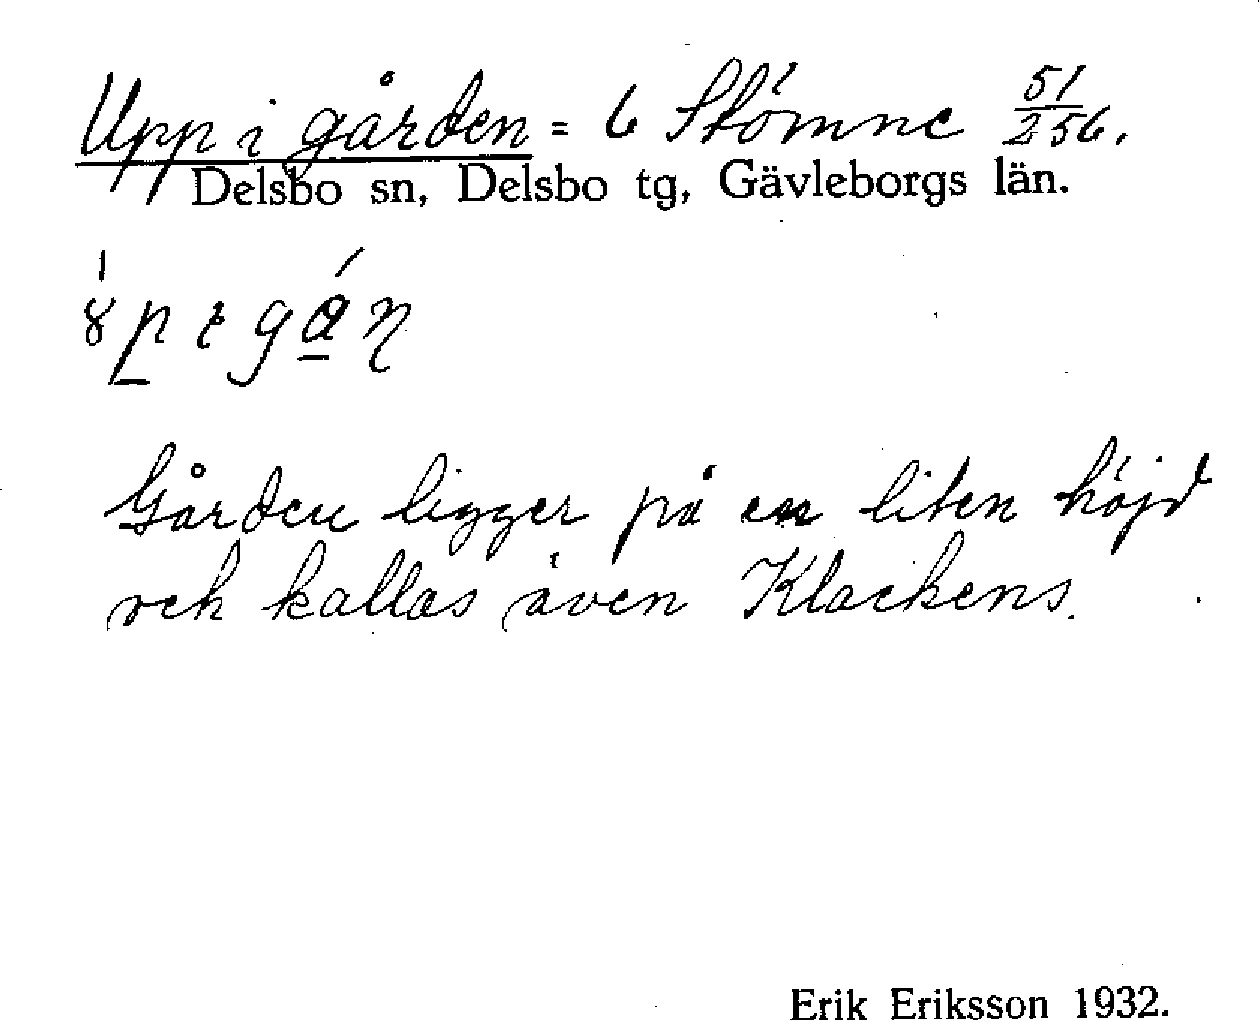 Upp i gården = 6 Stömne 51/256.
Delsbo sn, Delsbo tg, Gävleborgs län.
Gården ligger på en liten höjd
och kallas även Klackens.
Erik Eriksson 1932.